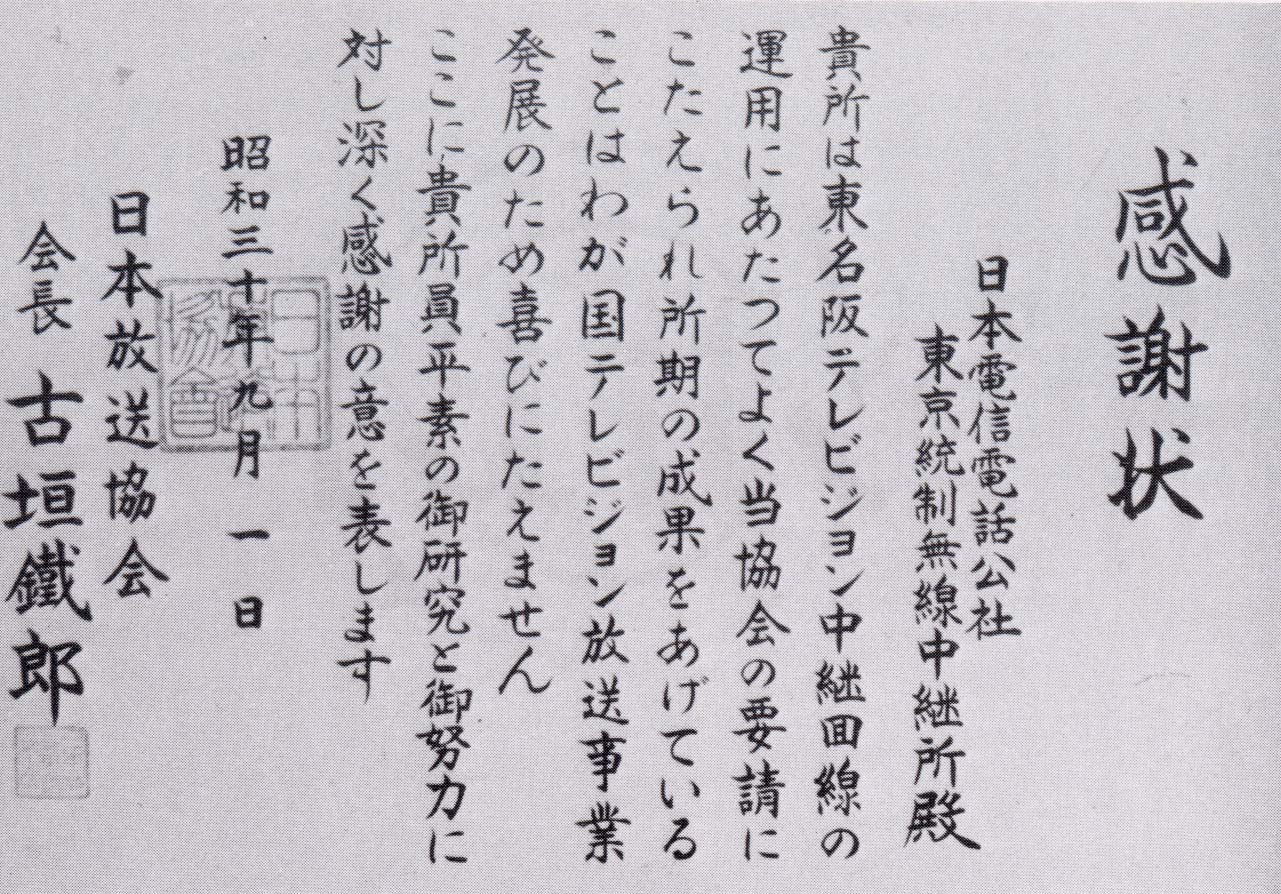 感謝状
日本電信電話公社
東京統制無線中継所殿
貴所は東名阪テレビジョン中継回線の
運用にあたつてよく当協会の要請に
こたえられ所期の成果をあげている
ことはわが国テレビジョン放送事業
発展のため喜びにたえません
ここに貴所員平素の御研究と御努力に
対し深く感謝の意を表します
昭和三十年九月一日
日本放送協会
会長 古垣鐵郎
日本放送協会